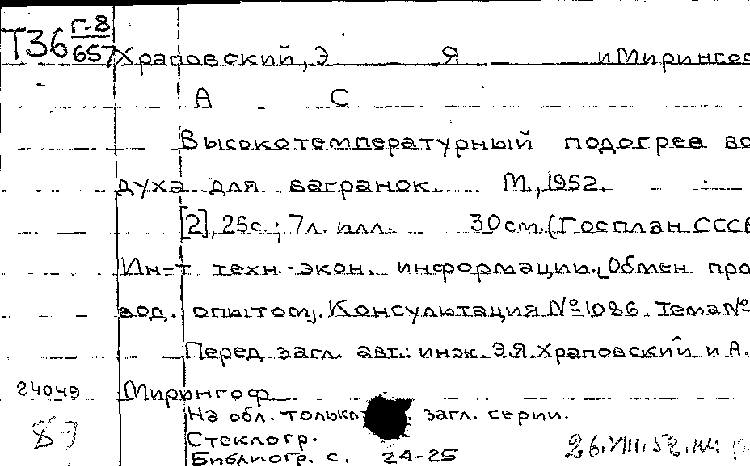 Т36 Г-8
657
Храповский, Э Я и Мирингоф
А С
Высокотемпературный подогрев воз
духа для вагранок. М., 1952.
[2], 25с.; 7л. илл. 30см. (Госплан СССР
Ин-т техн-экон. информации. Обмен про
вод. опытом). Консультация №1086. Тема №
Перед загл. авт.: инж. Э.Я. Храповский и А.
24049 Мирингоф
На обл. только загл. серии.
Стеклогр.
Библиогр. с. 24-25
26.VIII.52.